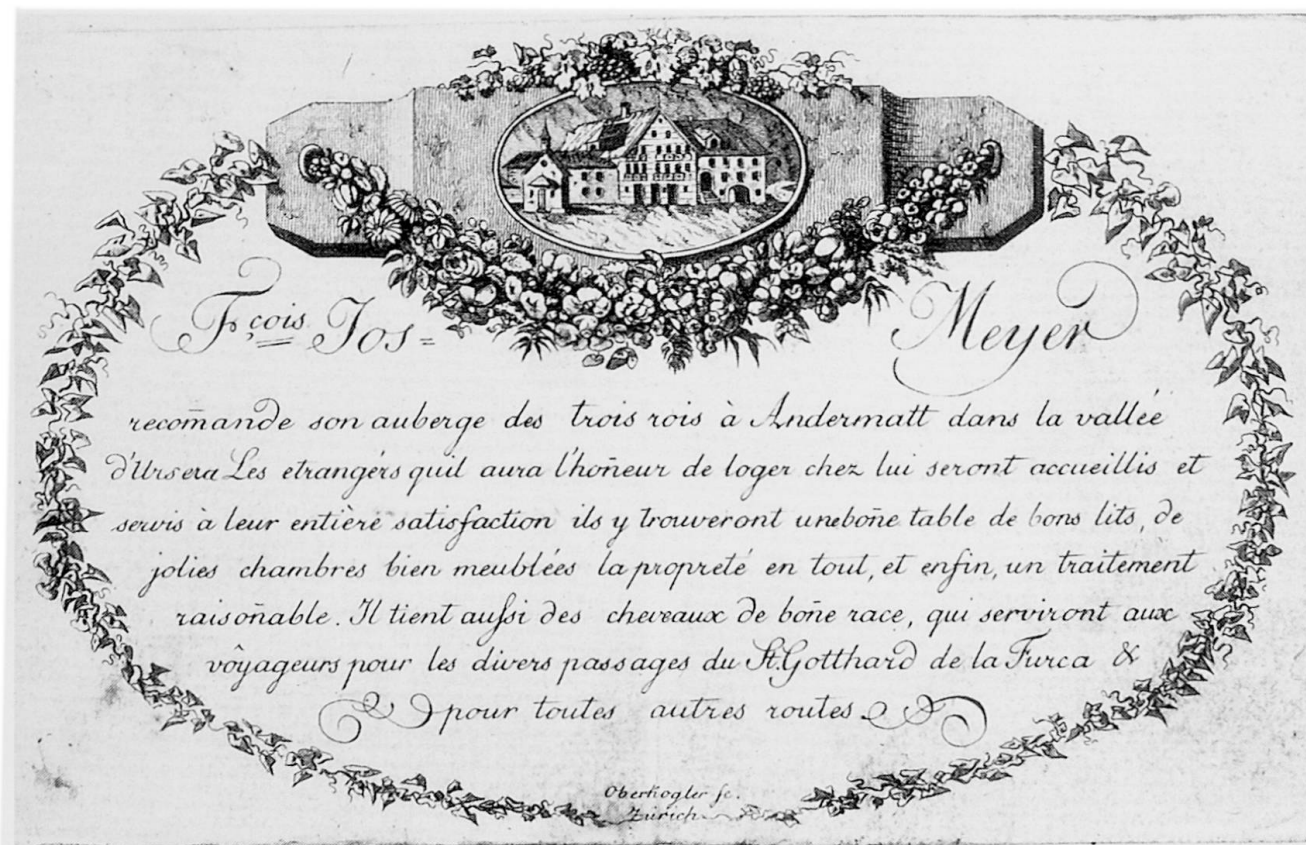 Fçois Jos= Meyer
recom̄ande son auberge des trois rois à Andermatt dans la vallée
d'Ursera Les etrangérs quil aura l'hon̄eur de loger chez lui seront accueillis et
servis à leur entière satisfaction ils y trouveront unebon̄e table de bons lits, de
jolies chambres bien meublées la propreté en tout, et enfin, un traitement
raison̄able. Il tient aussi des chevaux de bon̄e race, qui serviront aux
vôyageurs pour les divers passages du St. Gotthard de la Furca &
pour toutes autres routes.
Oberkogler sc.
Zürich